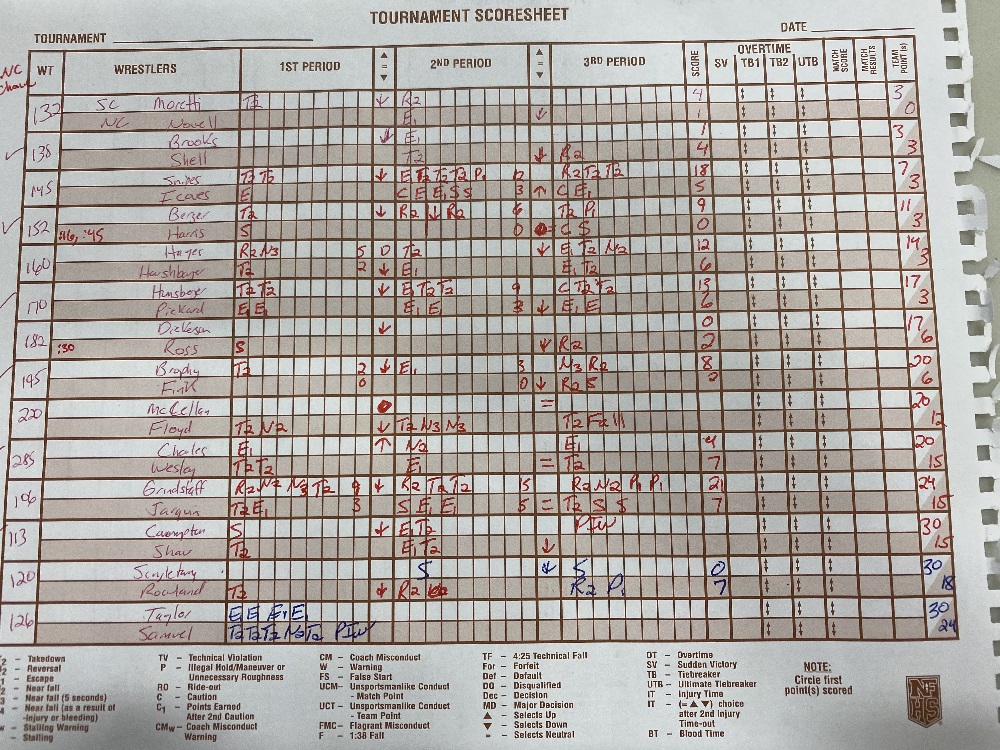 TOURNAMENT SCORESHEET
TOURNAMENT DATE
NC WT WRESTLERS 1ST PERIOD ▲ = ▼ 2ND PERIOD ▲ = ▼ 3RD PERIOD SCORE OVERTIME SV TB1 TB2 UTB MATCH SCORE MATCH RESULTS TEAM POINT(s)
132 SC Moretti T2 ↓ R2 4 3
NC Novell E1 ↓ 1 0
138 Brooks ↓ E1 1 3
Shell T2 ↓ R2 4 3
145 Snipes T2 T2 ↓ 12 R2 T2 T2 18 7
Eaves E C E E1 S S 3 ↑ C E1 5 3
152 Berger T2 ↓ R2 ↓ R2 6 T2 P1 9 11
:16, :45 Harris S 0 = C S 0 3
160 Hayes R2 N3 5 0 T2 ↓ E1 T2 N2 12 14
Harshbarger T2 2 ↓ E1 E1 T2 6 3
170 Hunsberger T2 T2 ↓ E1 T2 T2 9 C T2 T2 13 17
Pickard E1 E1 ↓ E1 E 3 ↓ E1 E 6 3
182 Dickeson ↓ 0 17
:30 Ross S ↓ R2 2 6
195 Brophy T2 2 ↓ E1 3 N3 R2 8 20
Fink 0 0 ↓ R2 S 2 6
220 McCellan = 20
Floyd T2 N2 ↓ T2 N3 N3 T2 Fall 12
285 Charles E1 ↑ N2 E1 4 20
Wesley T2 T2 E1 = T2 7 15
106 Grindstaff R2 N2 N3 T2 9 ↓ R2 T2 T2 15 R2 N2 P1 P1 21 24
Jarqun T2 E1 3 S E1 E1 5 = T2 S S 7 15
113 Crompton S ↓ E1 T2 PIN 30
Shav T2 E1 T2 ↓ 15
120 Singletary S ↓ S 0 30
Rowland T2 ↓ R2 R2 P1 7 18
126 Taylor E E E1 E 30
Samuel T2 T2 T2 N2 T2 PIN 24
2 – Takedown
2 – Reversal
1 – Escape
2 – Near fall
3 – Near fall (5 seconds)
4 – Near fall (as a result of
-injury or bleeding)
w – Stalling Warning
– Stalling
TV – Technical Violation
P – Illegal Hold/Maneuver or
Unnecessary Roughness
RO – Ride-out
C – Caution
C1 – Points Earned
After 2nd Caution
CMw – Coach Misconduct
Warning
CM – Coach Misconduct
W – Warning
FS – False Start
UCM – Unsportsmanlike Conduct
- Match Point
UCT – Unsportsmanlike Conduct
- Team Point
FMC – Flagrant Misconduct
F – 1:38 Fall
TF – 4:25 Technical Fall
For – Forfeit
Def – Default
DQ – Disqualified
Dec – Decision
MD – Major Decision
▲ – Selects Up
▼ – Selects Down
= – Selects Neutral
OT – Overtime
SV – Sudden Victory
TB – Tiebreaker
UTB – Ultimate Tiebreaker
IT – Injury Time
IT – (=▲▼) choice
after 2nd Injury
Time-out
BT – Blood Time
NOTE:
Circle first
point(s) scored
NF
HS